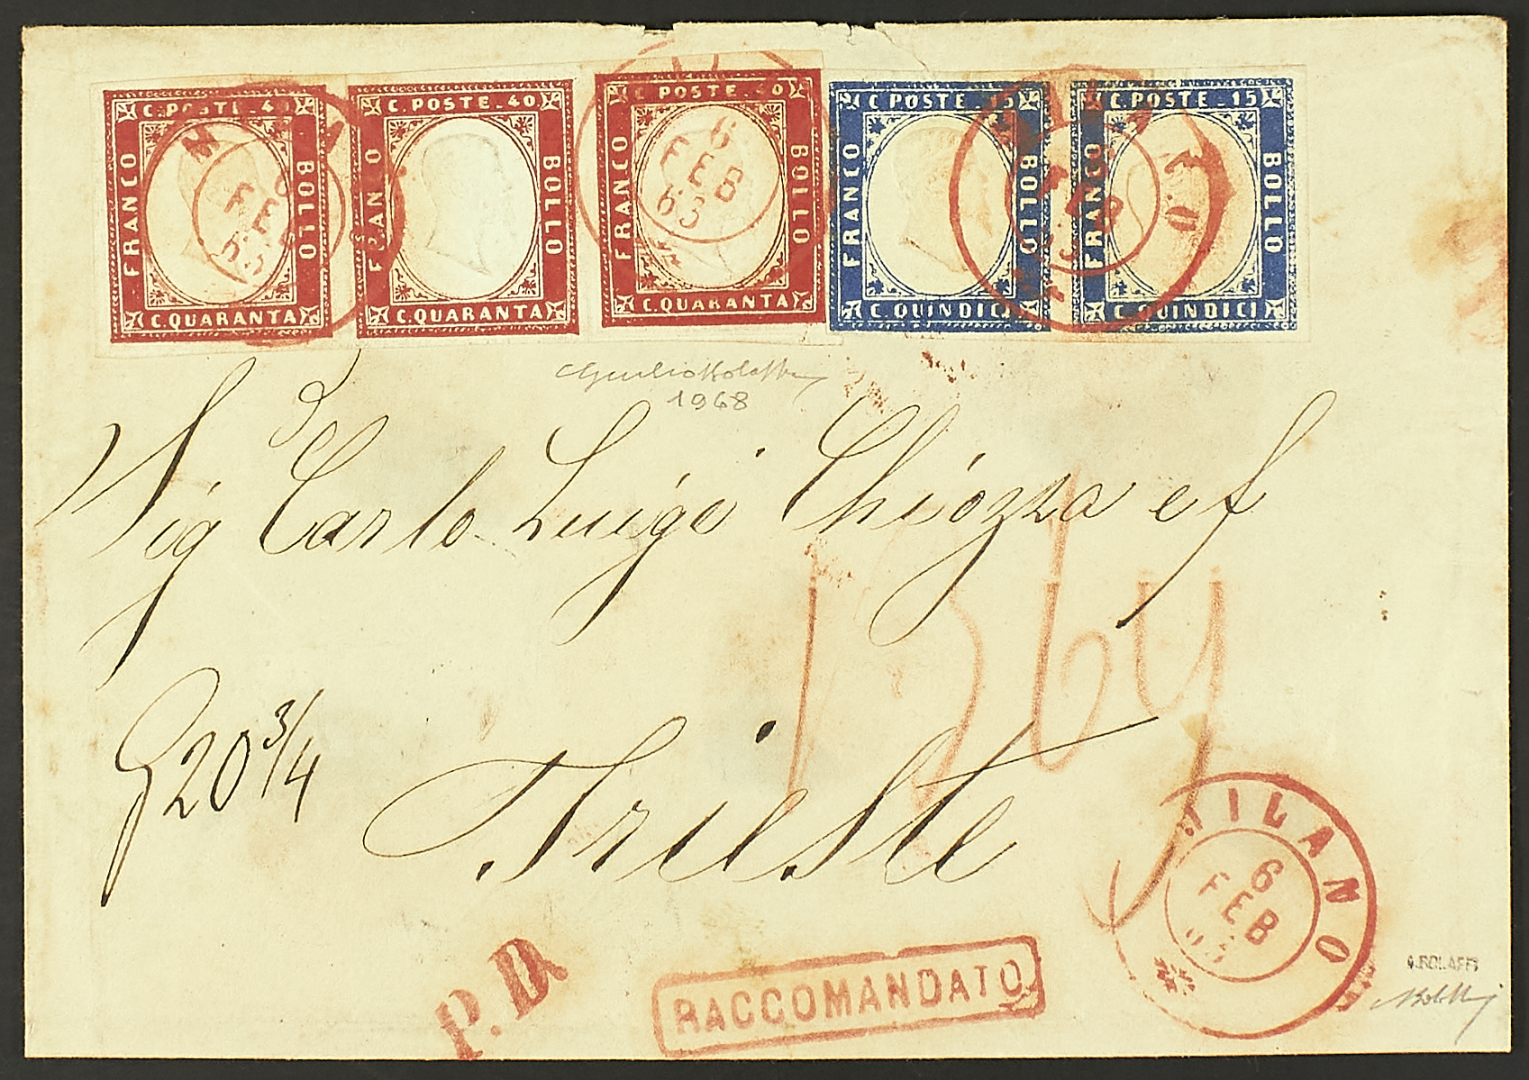 C. POSTE. 40
FRANCO
BOLLO
C. QUARANTA
C. POSTE. 40
FRANCO
BOLLO
C. QUARANTA
C. POSTE. 40
FRANCO
BOLLO
C. QUARANTA
C. POSTE. 15
FRANCO
BOLLO
C. QUINDICI
C. POSTE. 15
FRANCO
BOLLO
C. QUINDICI
6
FEB
63
1968
Sig Carlo Luigi Chiozza e f
20 3/4
Trieste
MILANO
6
FEB
63
P.D.
RACCOMANDATO
A. BOLAFFI